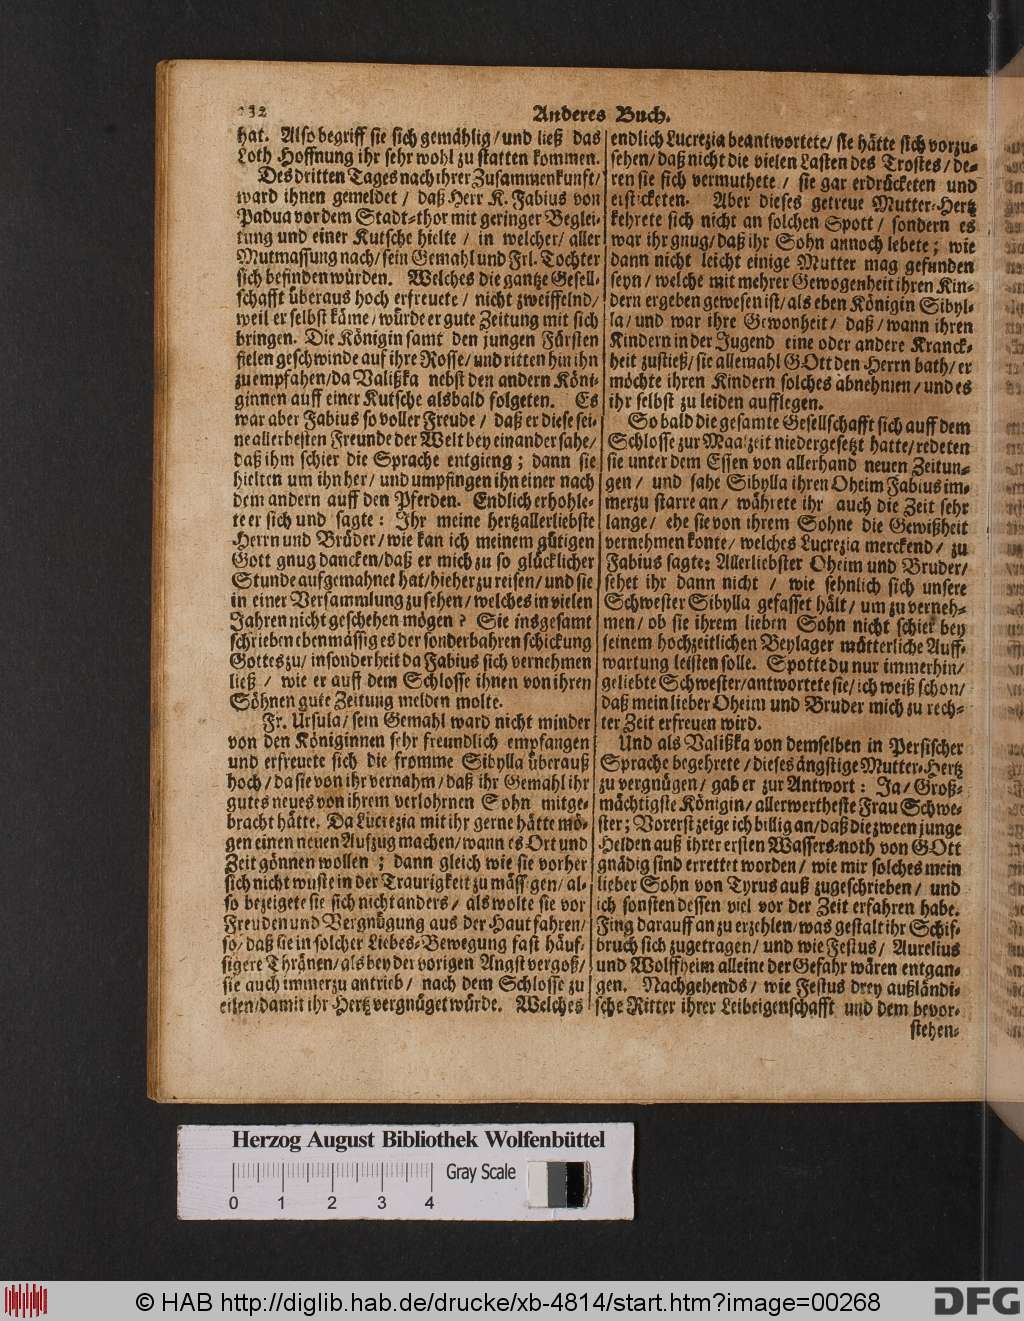 232
Anderes Buch.
hat. Also begriff sie sich gemählig/und ließ das
Loth Hoffnung ihr sehr wohl zu statten kommen.
Des dritten Tages nach ihrer Zusammenkunft/
ward ihnen gemeldet / daß Herr K. Fabius von
Padua vor dem Stadt-thor mit geringer Beglei-
tung und einer Kutsche hielte / in welcher/ aller
Mutmassung nach/ sein Gemahl und Frl. Tochter
sich befinden würden. Welches die gantze Gesell-
schafft überaus hoch erfreuete / nicht zweiffelnd/
weil er selbst käme/ würde er gute Zeitung mit sich
bringen. Die Königin samt den jungen Fürsten
fielen geschwinde auf ihre Rosse/ und ritten hin ihn
zu empfahen/da Valißka nebst den andern Köni-
ginnen auff einer Kutsche alsbald folgeten. Es
war aber Fabius so voller Freude / daß er diese sei-
ne allerbesten Freunde der Welt bey einander sahe/
daß ihm schier die Sprache entgieng; dann sie
hielten um ihn her/ und umpfingen ihn einer nach
dem andern auff den Pferden. Endlich erhohle-
te er sich und sagte: Ihr meine hertzallerliebste
Herrn und Brüder/ wie kan ich meinem gütigen
Gott gnug dancken/daß er mich zu so glücklicher
Stunde aufgemahnet hat/hieher zu reisen/ und sie
in einer Versammlung zu sehen/ welches in vielen
Jahren nicht geschehen mögen? Sie insgesamt
schrieben ebenmässig es der sonderbahren schickung
Gottes zu/ insonderheit da Fabius sich vernehmen
ließ / wie er auff dem Schlosse ihnen von ihren
Söhnen gute Zeitung melden molte.
Fr. Ursula/ sein Gemahl ward nicht minder
von den Königinnen sehr freundlich empfangen
und erfreuete sich die fromme Sibylla überauß
hoch/ da sie von ihr vernahm/ daß ihr Gemahl ihr
gutes neues von ihrem verlohrnen Sohn mitge-
bracht hätte. Da Lucrezia mit ihr gerne hätte mö-
gen einen neuen Aufzug machen/ wann es Ort und
Zeit gönnen wollen ; dann gleich wie sie vorher
sich nicht wuste in der Traurigkeit zu mässigen/ al-
so bezeigete sie sich nicht anders/ als wolte sie vor
Freuden und Vergnügung aus der Haut fahren/
so/ daß sie in solcher Liebes-Bewegung fast häuf-
sigere Thränen/ als bey der vorigen Angst vergoß/
sie auch immerzu antrieb/ nach dem Schlosse zu
eilen/damit ihr Hertz vergnüget würde. Welches
endlich Lucrezia beantwortete/ sie hätte sich vorzu-
sehen/ daß nicht die vielen Lasten des Trostes/ de-
ren sie sich vermuthete / sie gar erdrücketen und
ersticketen. Aber dieses getreue Mutter-Hertz
kehrete sich nicht an solchen Spott / sondern es
war ihr gnug/ daß ihr Sohn annoch lebete; wie
dann nicht leicht einige Mutter mag gefunden
seyn/ welche mit mehrer Gewogenheit ihren Kin-
dern ergeben gewesen ist/ als eben Königin Sibyl-
la/ und war ihre Gewonheit / daß/ wann ihren
Kindern in der Jugend eine oder andere Kranck-
heit zustieß/ sie allemahl GOtt den Herrn bath/ er
möchte ihren Kindern solches abnehmen/ und es
ihr selbst zu leiden aufflegen.
So bald die gesamte Gesellschafft sich auff dem
Schlosse zur Maalzeit niedergesetzt hatte/ redeten
sie unter dem Essen von allerhand neuen Zeitun-
gen/ und sahe Sibylla ihren Oheim Fabius im-
merzu starre an/ währete ihr auch die Zeit sehr
lange/ ehe sie von ihrem Sohne die Gewißheit
vernehmen konte/ welches Lucrezia merckend/ zu
Fabius sagte: Allerliebster Oheim und Bruder/
sehet ihr dann nicht / wie sehnlich sich unsere
Schwester Sibylla gefasset hält/ um zu verneh-
men/ ob sie ihrem lieben Sohn nicht schier bey
seinem hochzeitlichen Beylager mütterliche Auff-
wartung leisten solle. Spotte du nur immerhin/
geliebte Schwester/antwortete sie/ ich weiß schon/
daß mein lieber Oheim und Bruder mich zu rech-
ter Zeit erfreuen wird.
Und als Valißka von demselben in Persischer
Sprache begehrete / dieses ängstige Mutter-Hertz
zu vergnügen/ gab er zur Antwort: Ja/ Groß-
mächtigste Königin/ allerwertheste Frau Schwe-
ster; Vorerst zeige ich billig an/ daß die zween junge
Helden auß ihrer ersten Wassers-noth von GOtt
gnädig sind errettet worden/ wie mir solches mein
lieber Sohn von Tyrus auß zugeschrieben/ und
ich sonsten dessen viel vor der Zeit erfahren habe.
Fing darauff an zu erzehlen/ was gestalt ihr Schif-
bruch sich zugetragen/ und wie Festus/ Aurelius
und Wolffheim alleine der Gefahr wären entgan-
gen. Nachgehends/ wie Festus drey außländi-
sche Ritter ihrer Leibeigenschafft und dem bevor-
stehen-
Herzog August Bibliothek Wolfenbüttel
Gray Scale
0 1 2 3 4
© HAB http://diglib.hab.de/drucke/xb-4814/start.htm?image=00268
DFG